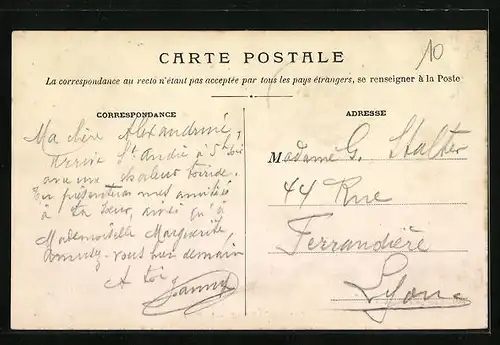 CARTE POSTALE
10
La correspondance au recto n'étant pas acceptée par tous les pays étrangers, se renseigner à la Poste
CORRESPONDANCE
Ma chère Alexandrine,
Arrive St André à 5h
avec une chaleur torride.
Tu présenteras mes amitiés
à ta sœur, ainsi qu'à
Mademoiselle Marguerite,
Amusez-vous bien demain
A toi
Fanny
ADRESSE
Madame G. Stalter
44 Rue
Ferrandière
Lyon